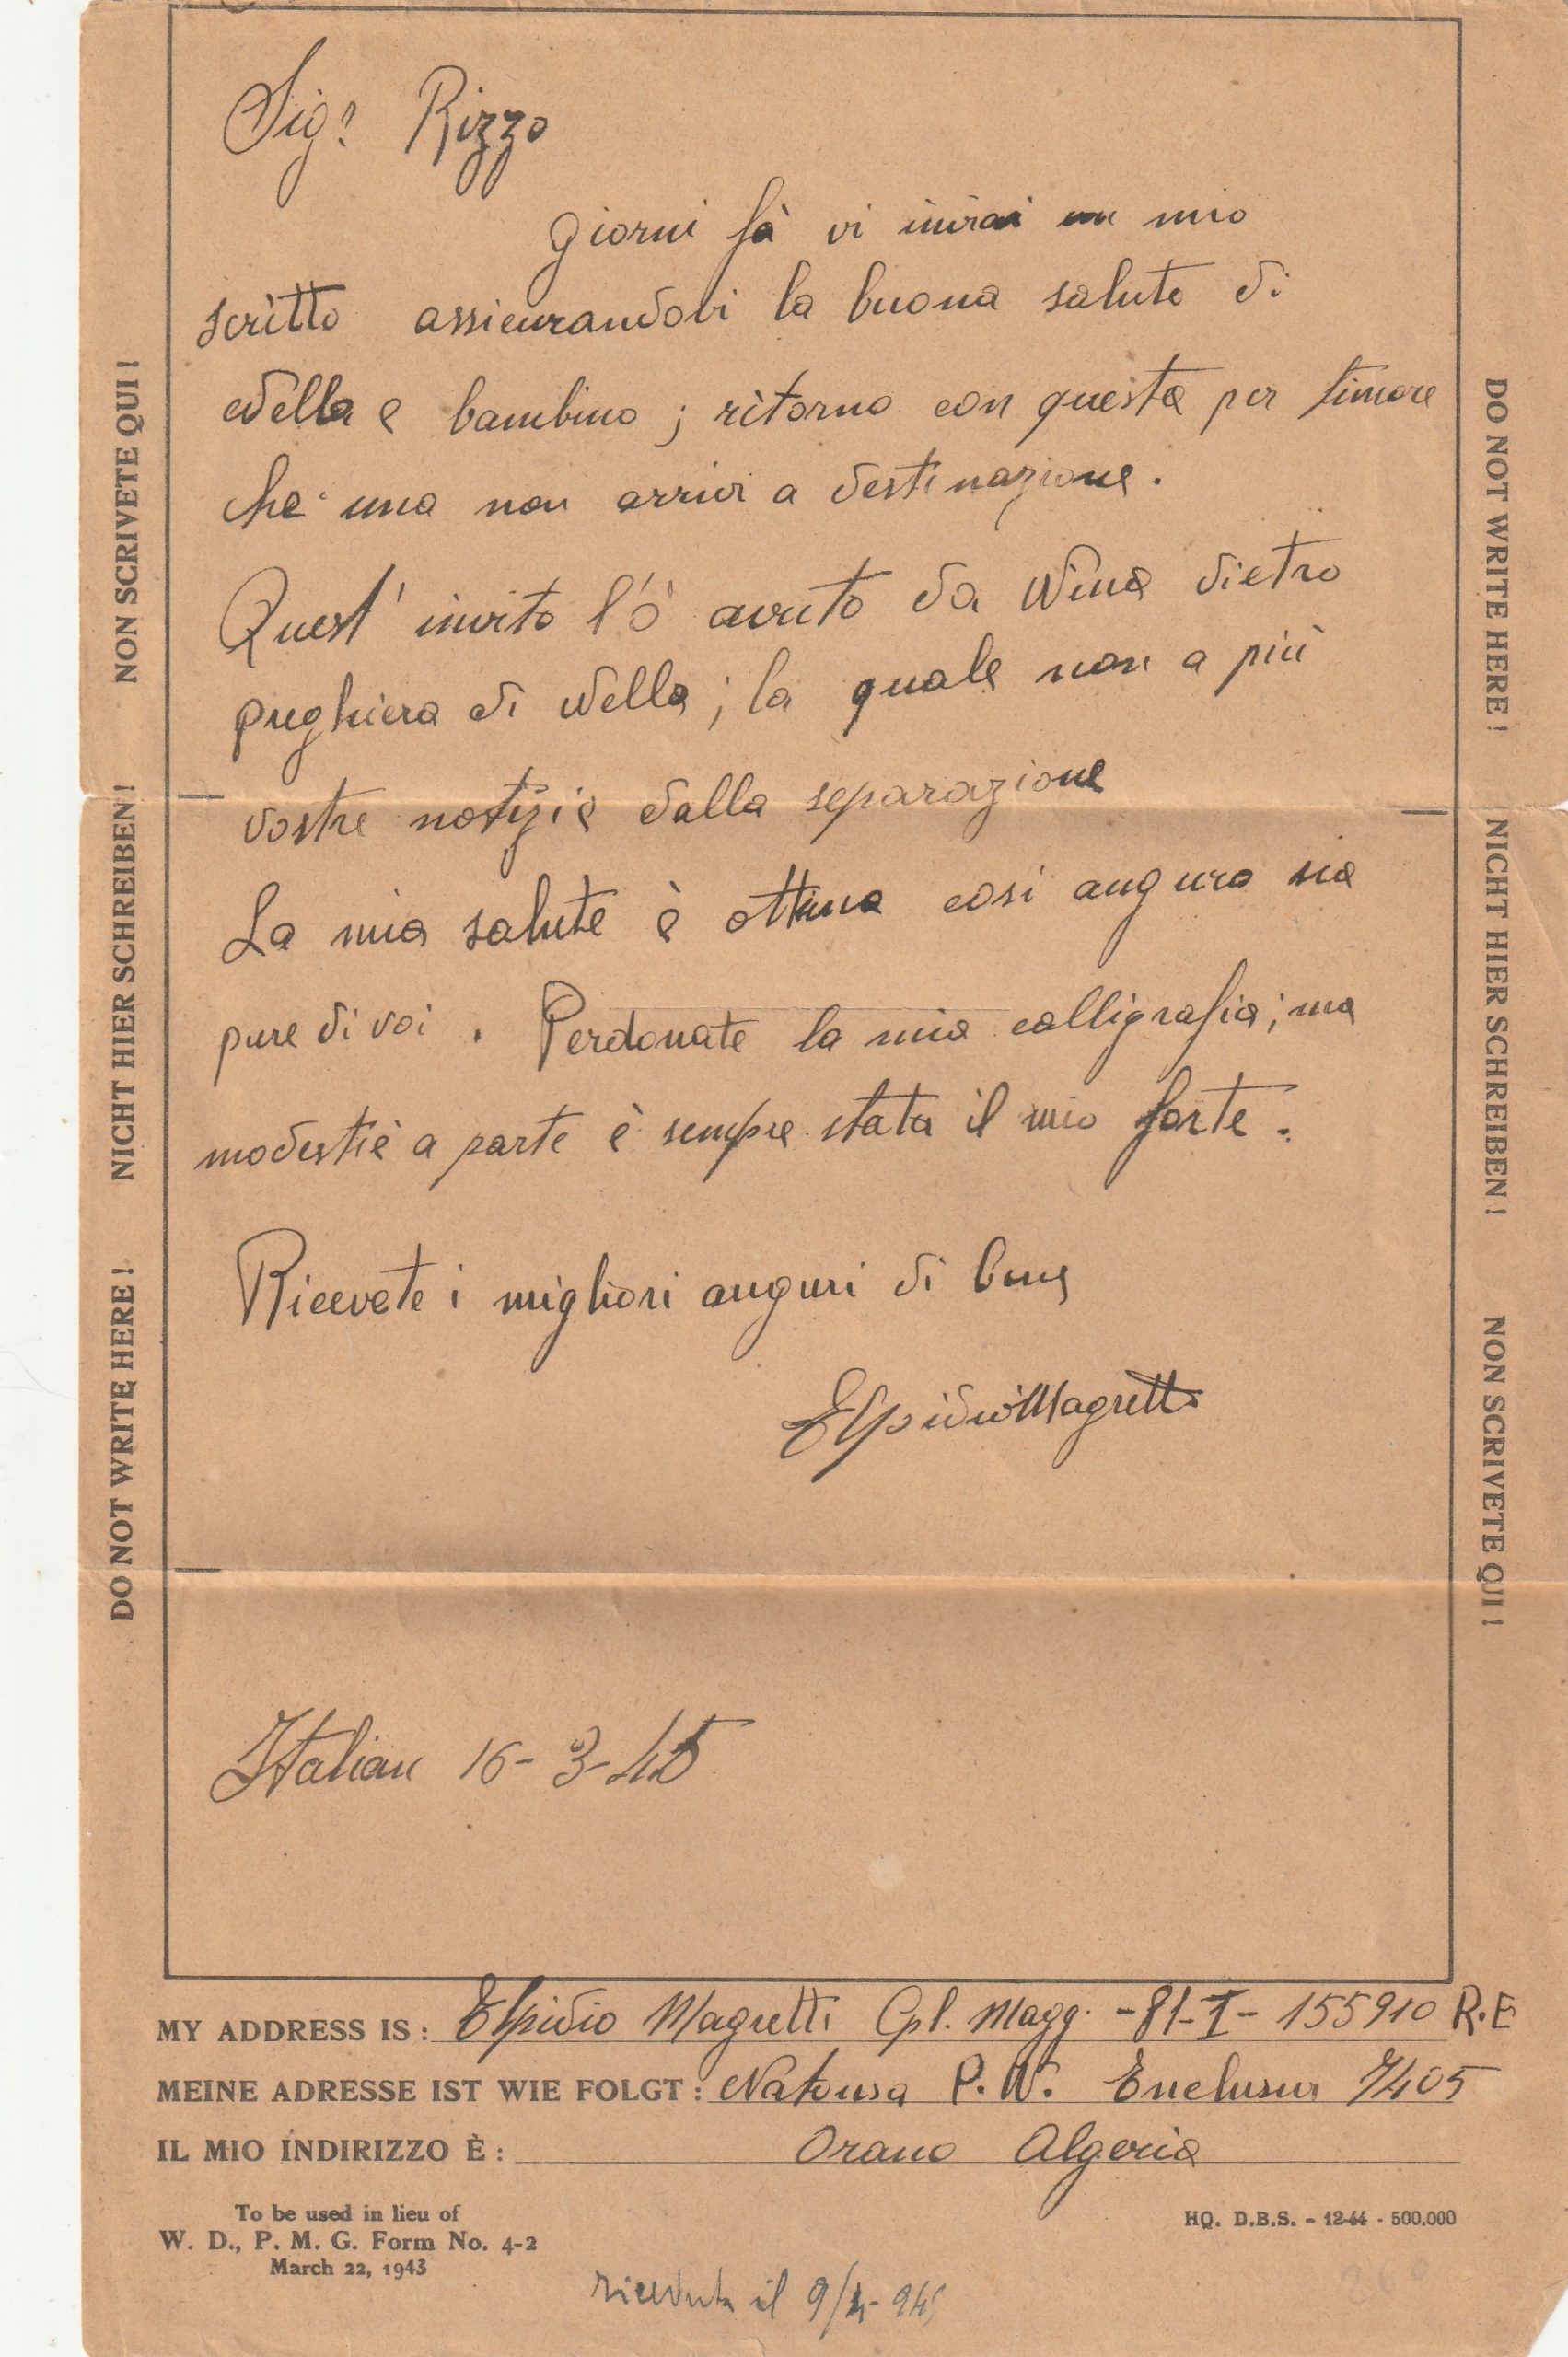 Sigr Rizzo
Giorni fà vi inviai un mio
scritto assicurandovi la buona salute di
Nella e bambino; ritorno con questa per timore
che una non arrivi a destinazione.
Quest' invito l'ò avuto da Nina dietro
preghiera di Nella; la quale non a più
vostre notizie dalla separazione
La mia salute è ottima così auguro sia
pure di voi. Perdonate la mia calligrafia; ma
modestia a parte è sempre stata il mio forte.
Ricevete i migliori auguri di bene
Elpidio Magretti
Italian 16-3-45
MY ADDRESS IS: Elpidio Magretti Cpl. Magg. -81-I- 155910 R.E
MEINE ADRESSE IST WIE FOLGT: Natousa P.W. Enclusur 7405
IL MIO INDIRIZZO È: Orano Algeria
To be used in lieu of
W. D., P. M. G. Form No. 4-2
March 22, 1943
HQ. D.B.S. - 12-44 - 500.000
ricevuta il 9/4-945
NON SCRIVETE QUI!
NICHT HIER SCHREIBEN!
DO NOT WRITE HERE!
DO NOT WRITE HERE!
NICHT HIER SCHREIBEN!
NON SCRIVETE QUI!